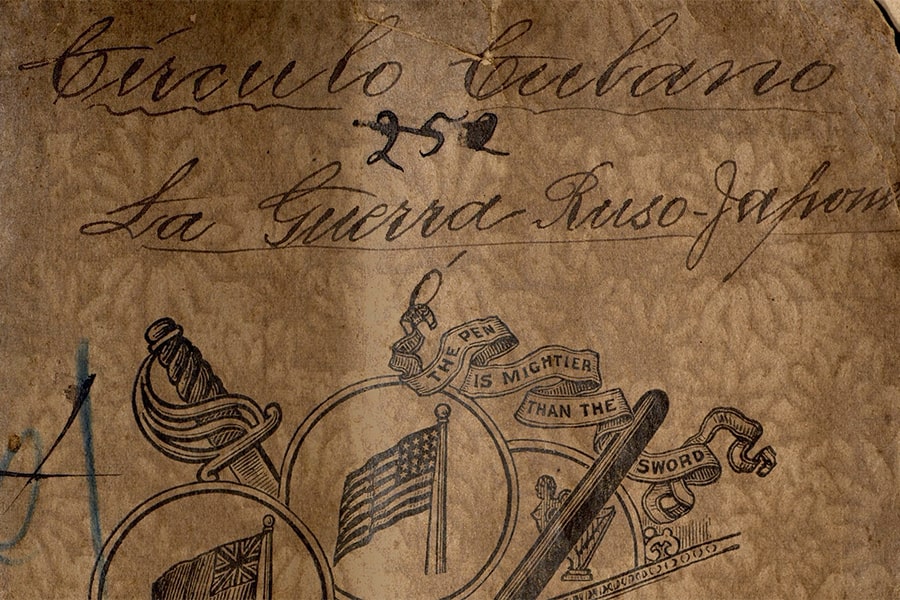 Círculo Cubano
252
La Guerra Ruso-Japon
ó
THE PEN
IS MIGHTIER
THAN THE
SWORD